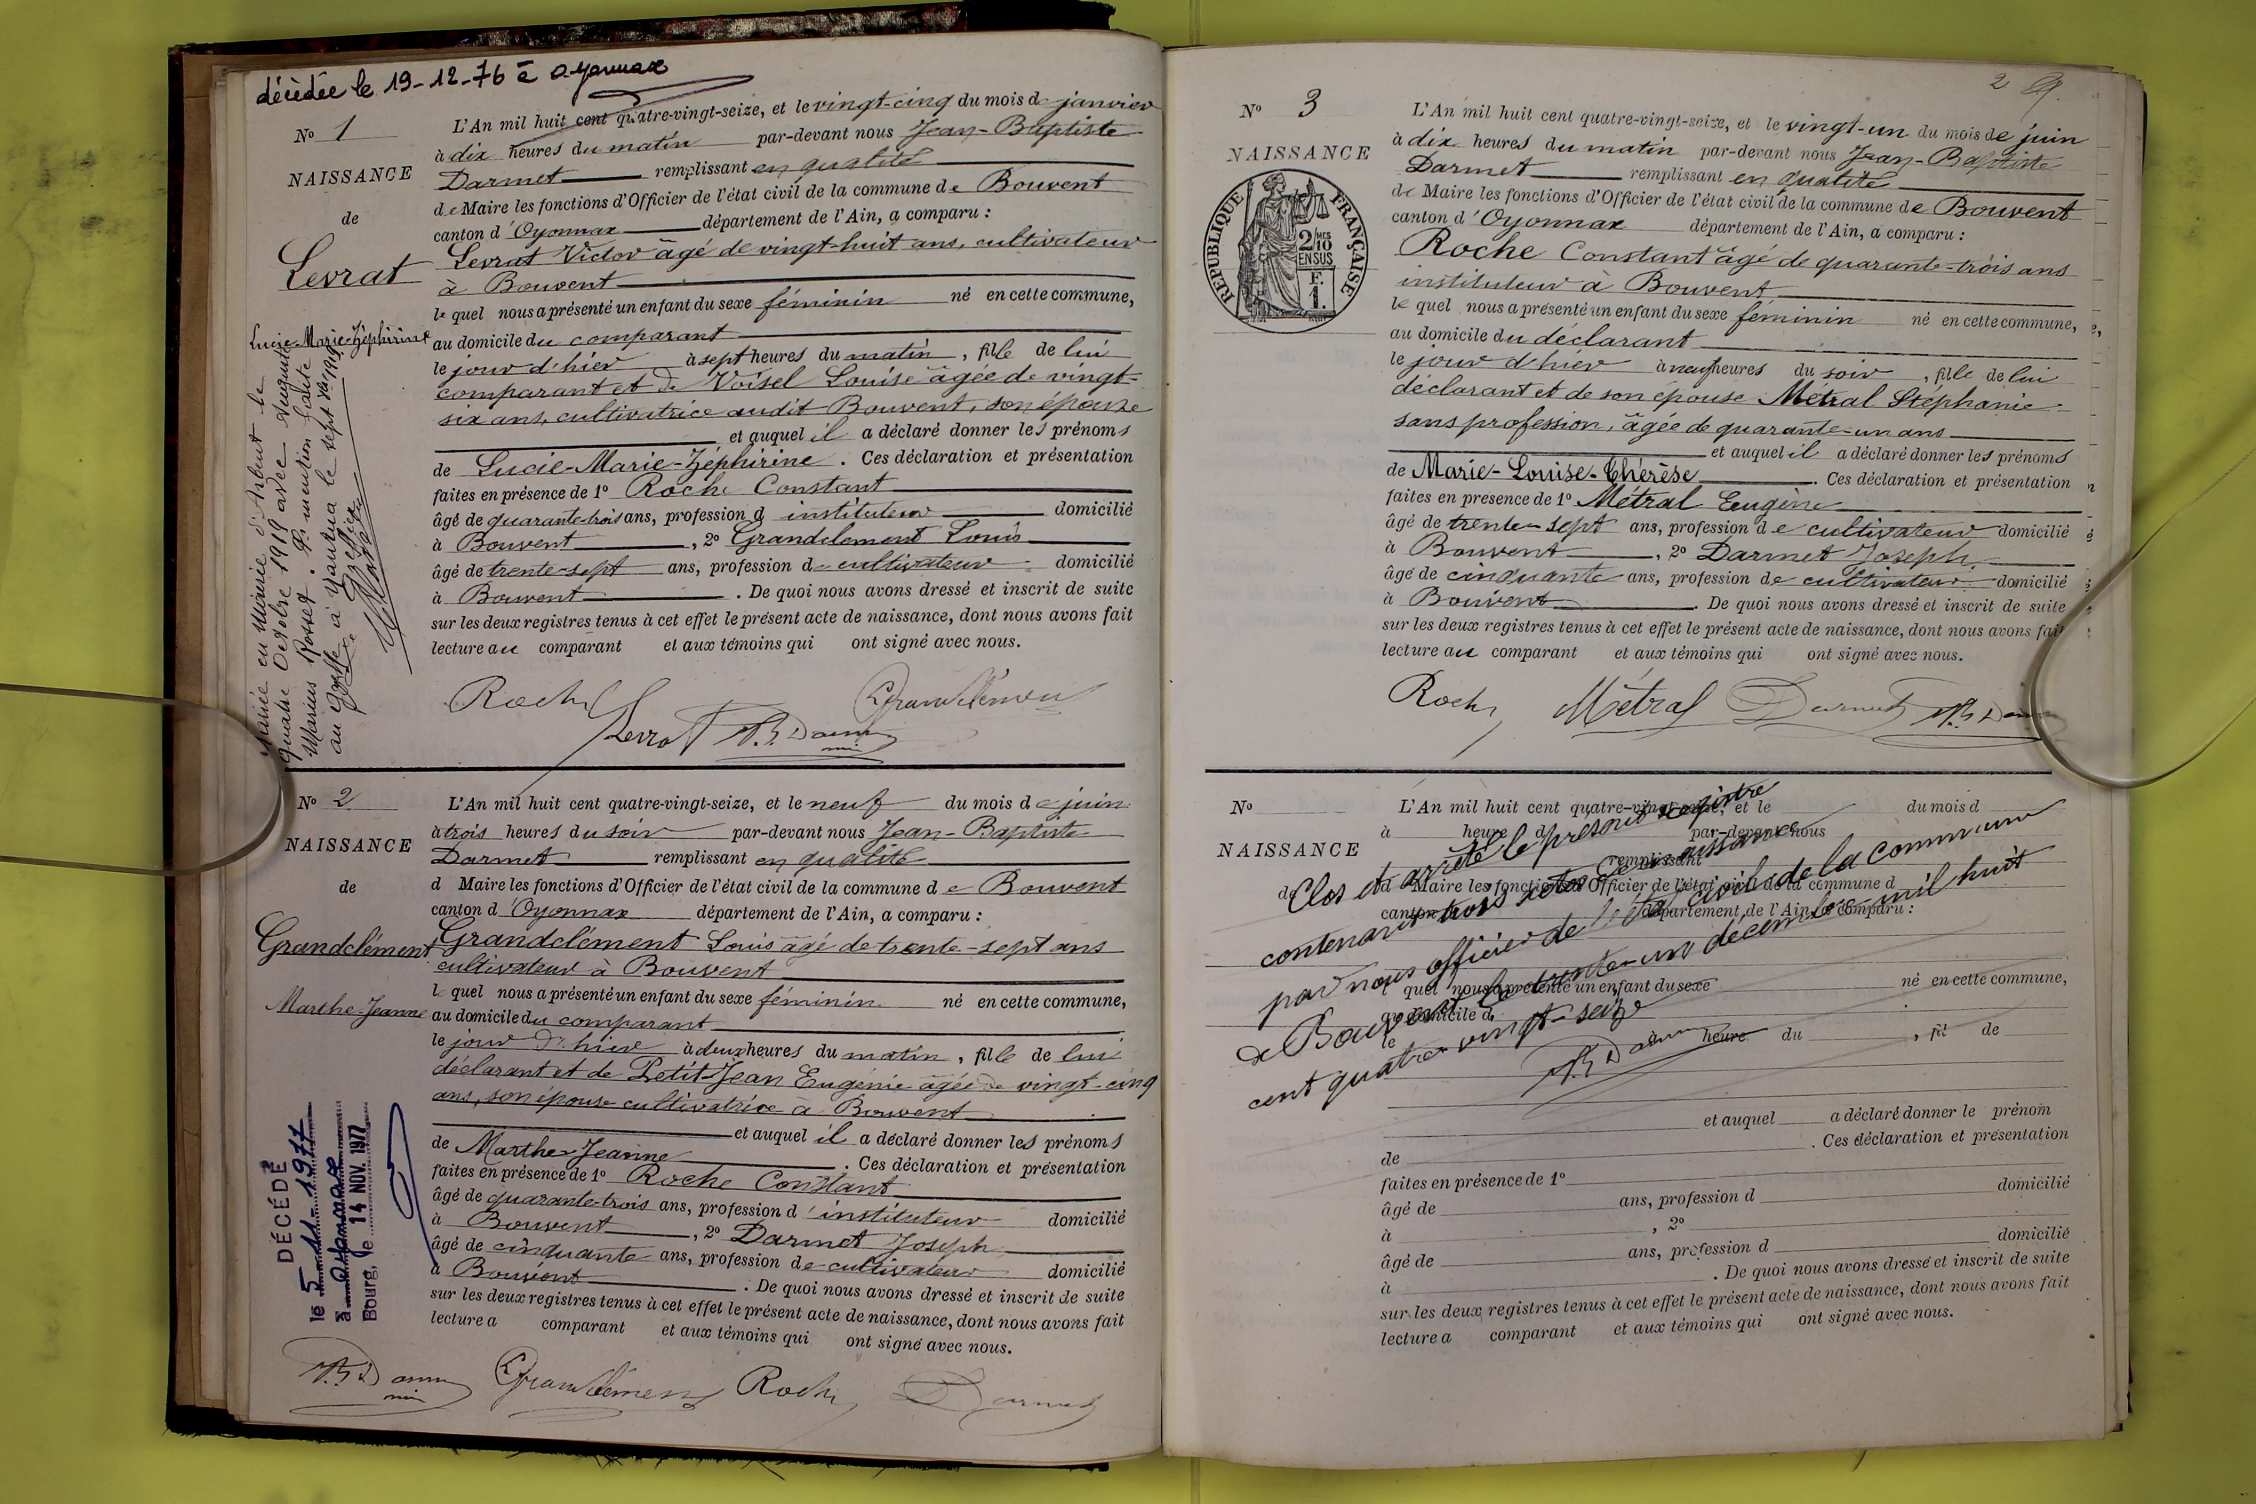 décédée le 19-12-76 à Oyonnax
No 1
NAISSANCE
de
Levrat
Lucie-Marie-Zéphirine
Mariée en Mairie d'Arbent le
quatre Octobre 1919 avec Auguste
Marius Rosset. Pr mention faite
au Greffe à Nantua le sept 8bre 1919.
Le Greffier
L'An mil huit cent quatre-vingt-seize, et le vingt-cinq du mois de janvier
à dix heures du matin par-devant nous Jean-Baptiste
Darmet remplissant en qualité
de Maire les fonctions d'Officier de l'état civil de la commune de Bouvent
canton d'Oyonnax département de l'Ain, a comparu :
Levrat Victor âgé de vingt-huit ans, cultivateur
à Bouvent
lequel nous a présenté un enfant du sexe féminin né en cette commune,
au domicile du comparant
le jour d'hier à sept heures du matin, fille de lui
comparant et de Voisel Louise âgée de vingt-
six ans, cultivatrice audit Bouvent, son épouse
et auquel il a déclaré donner les prénoms
de Lucie-Marie-Zéphirine. Ces déclaration et présentation
faites en présence de 1º Roche Constant
âgé de quarante-trois ans, profession d'instituteur domicilié
à Bouvent, 2º Grandclement Louis
âgé de trente-sept ans, profession de cultivateur domicilié
à Bouvent. De quoi nous avons dressé et inscrit de suite
sur les deux registres tenus à cet effet le présent acte de naissance, dont nous avons fait
lecture au comparant et aux témoins qui ont signé avec nous.
Roche Levrat J.B. Darmet Grandclément
No 2
NAISSANCE
de
Grandclément
Marthe-Jeanne
DÉCÉDÉ
le 5-11-1977
à Oyonnax
Bourg, le 14 NOV. 1977
L'An mil huit cent quatre-vingt-seize, et le neuf du mois de juin
à trois heures du soir par-devant nous Jean-Baptiste
Darmet remplissant en qualité
d Maire les fonctions d'Officier de l'état civil de la commune de Bouvent
canton d'Oyonnax département de l'Ain, a comparu :
Grandclément Louis âgé de trente-sept ans
cultivateur à Bouvent
lequel nous a présenté un enfant du sexe féminin né en cette commune,
au domicile du comparant
le jour d'hier à deux heures du matin, fille de lui
déclarant et de Petit-Jean Eugénie âgée de vingt-cinq
ans, son épouse cultivatrice à Bouvent
et auquel il a déclaré donner les prénoms
de Marthe-Jeanne. Ces déclaration et présentation
faites en présence de 1º Roche Constant
âgé de quarante-trois ans, profession d'instituteur domicilié
à Bouvent, 2º Darmet Joseph
âgé de cinquante ans, profession de cultivateur domicilié
à Bouvent. De quoi nous avons dressé et inscrit de suite
sur les deux registres tenus à cet effet le présent acte de naissance, dont nous avons fait
lecture a comparant et aux témoins qui ont signé avec nous.
J.B. Darmet Grandclément Roche Darmet
2
No 3
NAISSANCE
RÉPUBLIQUE FRANÇAISE
2/10 EN SUS
F. 1.
L'An mil huit cent quatre-vingt-seize, et le vingt-un du mois de juin
à dix heures du matin par-devant nous Jean-Baptiste
Darmet remplissant en qualité
de Maire les fonctions d'Officier de l'état civil de la commune de Bouvent
canton d'Oyonnax département de l'Ain, a comparu :
Roche Constant âgé de quarante-trois ans
instituteur à Bouvent
lequel nous a présenté un enfant du sexe féminin né en cette commune,
au domicile du déclarant
le jour d'hier à neuf heures du soir, fille de lui
déclarant et de son épouse Métral Stéphanie
sans profession, âgée de quarante-un ans
et auquel il a déclaré donner les prénoms
de Marie-Louise-Thérèse. Ces déclaration et présentation
faites en présence de 1º Métral Eugène
âgé de trente-sept ans, profession de cultivateur domicilié
à Bouvent, 2º Darmet Joseph
âgé de cinquante ans, profession de cultivateur domicilié
à Bouvent. De quoi nous avons dressé et inscrit de suite
sur les deux registres tenus à cet effet le présent acte de naissance, dont nous avons fait
lecture au comparant et aux témoins qui ont signé avec nous.
Roche Métral Darmet J.B. Darmet
No
NAISSANCE
de
L'An mil huit cent quatre-vingt-seize, et le du mois d
à heure d par-devant nous
remplissant
d Maire les fonctions d'Officier de l'état civil de la commune d
canton département de l'Ain, a comparu :
quel nous a présenté un enfant du sexe né en cette commune,
au domicile d
le heure du , fil de
Clos et arrêté le présent registre
contenant trois actes de naissance
par nous officier de l'état civil de la commune
de Bouvent le trente-un décembre mil huit
cent quatre-vingt-seize
J.B. Darmet
et auquel a déclaré donner le prénom
de . Ces déclaration et présentation
faites en présence de 1º
âgé de ans, profession d domicilié
à , 2º
âgé de ans, profession d domicilié
à . De quoi nous avons dressé et inscrit de suite
sur les deux registres tenus à cet effet le présent acte de naissance, dont nous avons fait
lecture a comparant et aux témoins qui ont signé avec nous.